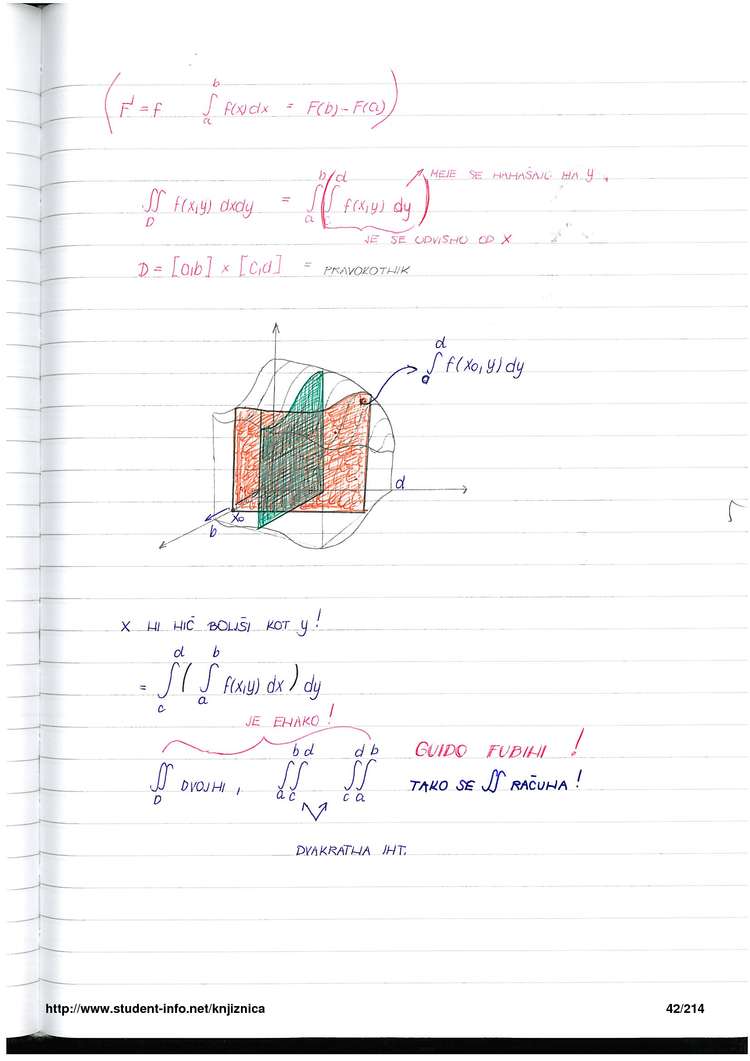 ( F' = f    ∫_a^b f(x)dx = F(b) - F(a) )
∬_D f(x,y) dxdy = ∫_a^b ( ∫_c^d f(x,y) dy ) MEJE SE NANAŠAJO NA y.
JE SE ODVISNO OD X
D = [a,b] × [c,d] = PRAVOKOTNIK
∫_a^d f(x₀,y) dy
d
x₀
b
X NI NIČ BOLJŠI KOT y!
= ∫_c^d ( ∫_a^b f(x,y) dx ) dy
JE ENAKO!
∬_D DVOJNI, ∫_a^b ∫_c^d ∫_c^d ∫_a^b GUIDO FUBINI!
TAKO SE ∬ RAČUNA!
DVAKRATNA INT.
http://www.student-info.net/knjiznica 42/214